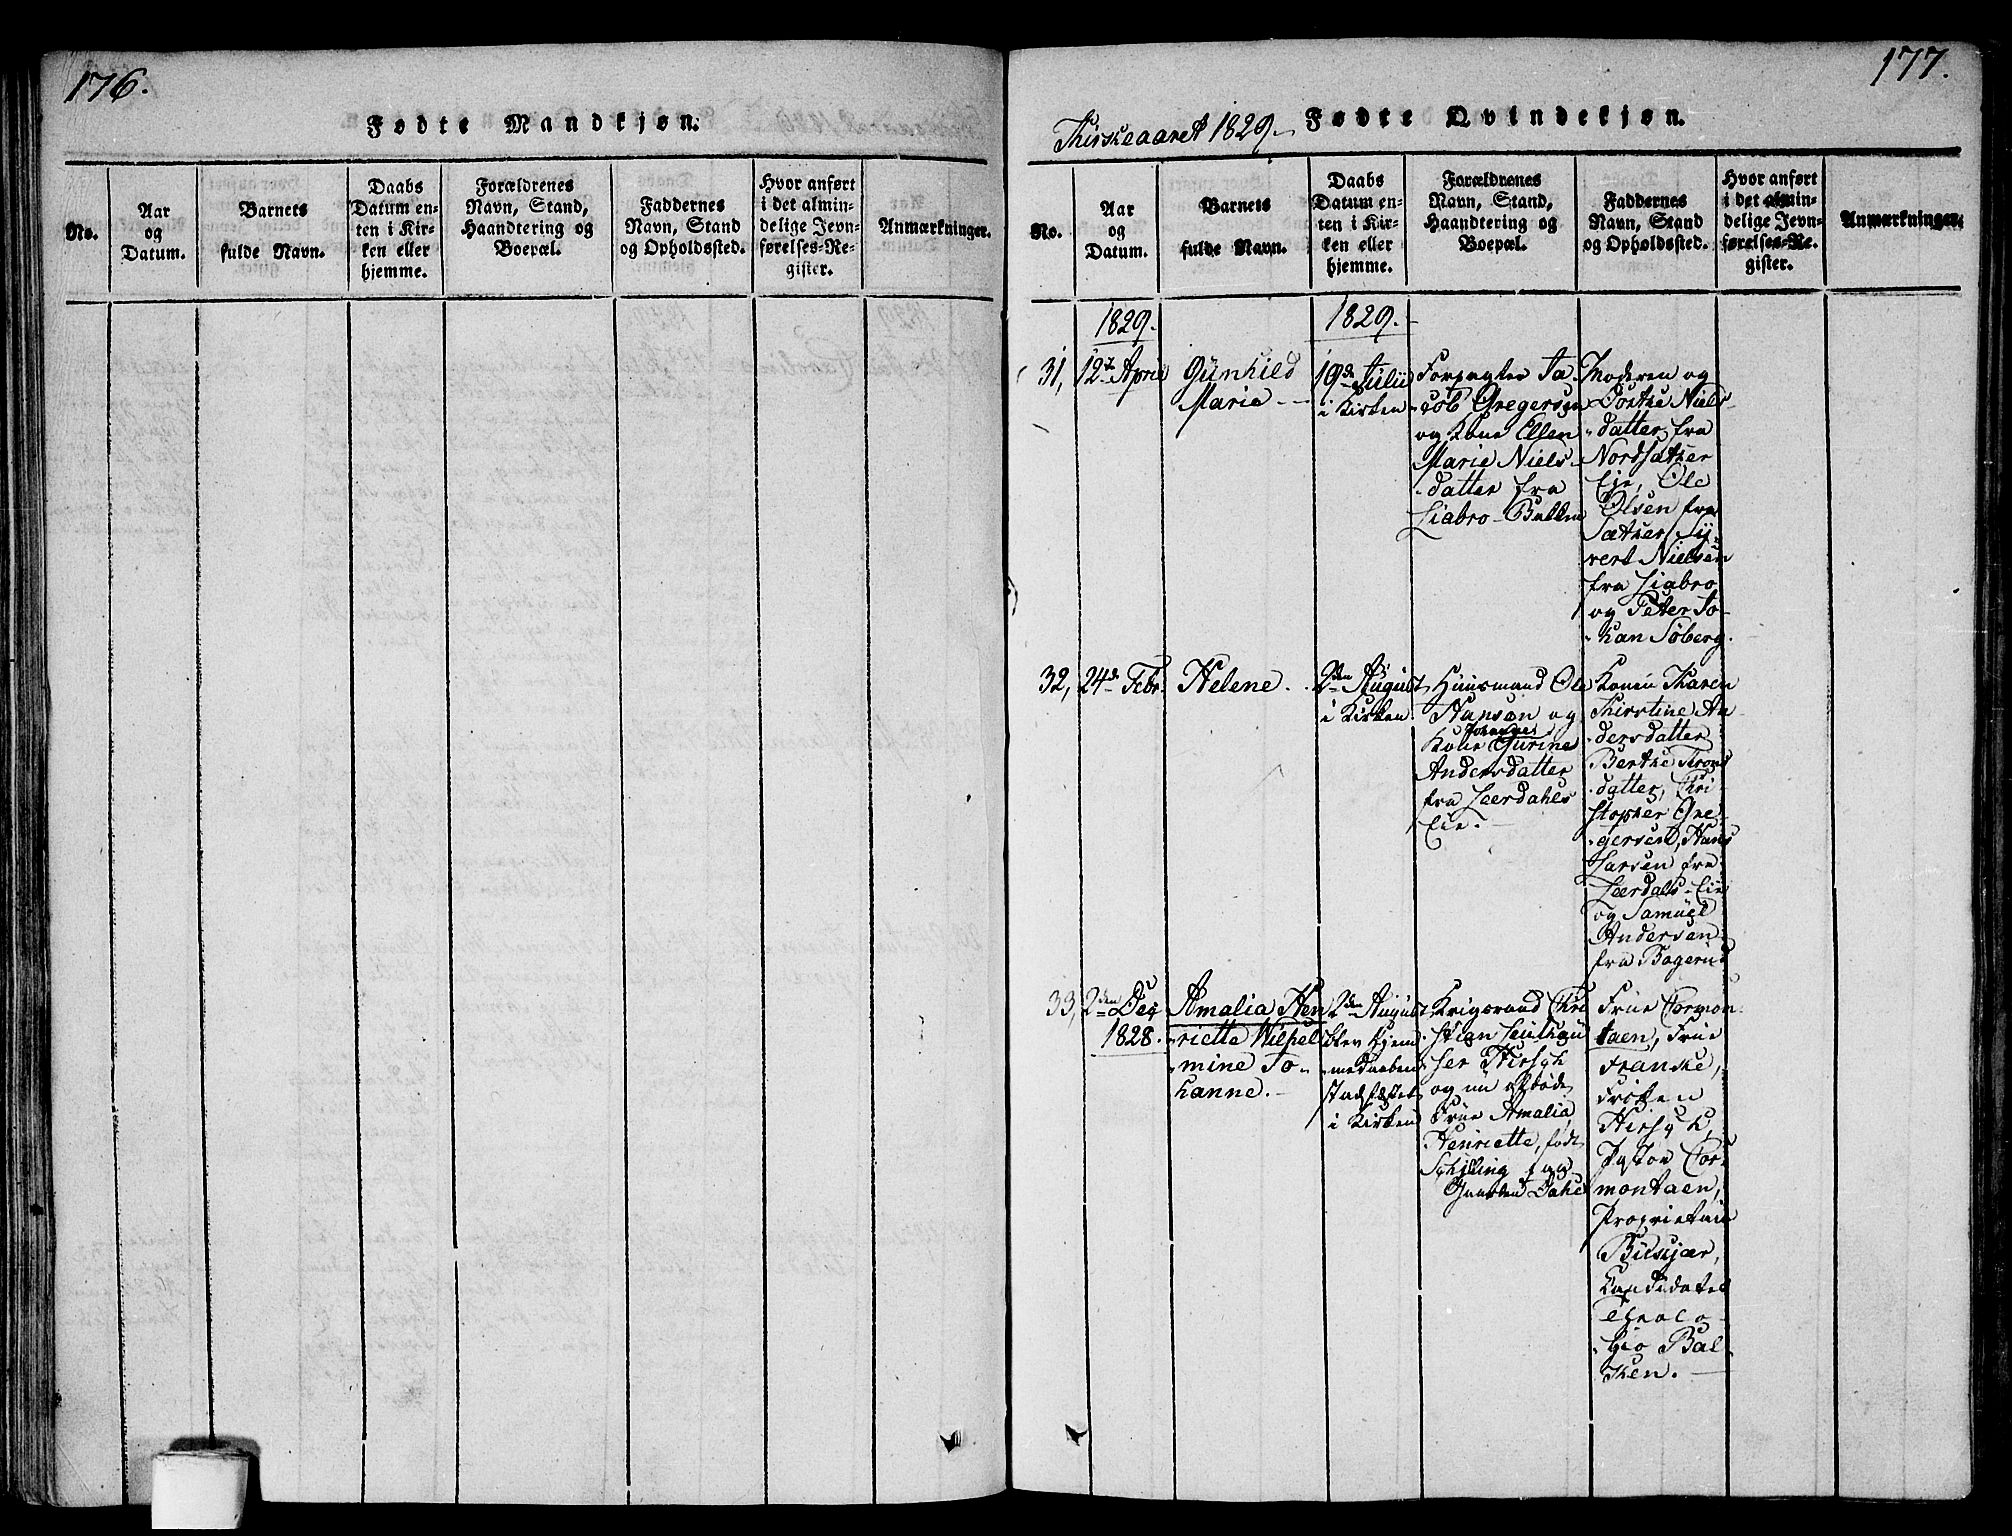 176.
Fødte Mandkjøn.
No.
Aar
og
Datum.
Barnets
fulde Navn.
Daabs
Datum en-
ten i Kir-
ken eller
hjemme.
Forældrenes
Navn, Stand,
Haandtering og
Boepæl.
Faddernes
Navn, Stand
og Opholdssted.
Hvor anført
i det almin-
delige Jevn-
førelses-Re-
gister.
Anmærkninger.
177.
Kirkeaaret 1829.
Fødte Qvindekjøn.
No.
Aar
og
Datum.
Barnets
fulde Navn.
Daabs
Datum en-
ten i Kir-
ken eller
hjemme.
Forældrenes
Navn, Stand,
Haandtering og
Boepæl.
Faddernes
Navn, Stand
og Opholdssted.
Hvor anført
i det almin-
delige Jevn-
førelses-Re-
gister.
Anmærkninger.
1829.
1829.
31,
12te April
Gunhild
Marie
19de Julii
i Kirken
Forpagter Ja-
cob Gregersen
og Kone Ellen
Marie Niels-
datter fra
Liabro-Bakken
Moderen og
Dorthe Niels-
datter fra
Nordsæther
Eie, Ole
Olsen fra
Sæther, Sy-
vert Nielsen
fra Liabro
og Peter Jo-
han Søberg.
32,
24de Febr.
Helene.
2den August
i Kirken
Huusmand Ole
Hansen og
Johanne
Kone Gurine
Andersdatter
fra Leerdahls
Eie.
Konen Karen
Kirstine An-
dersdatter
Berthe Trons
datter, Chri-
stopher Gre-
gersen, Hans
Larsen fra
Leerdals-Eie
og Samuel
Andersen
fra Bogerud
33,
2den Dec
1828.
Amalia Hen-
riette Wilhel-
mine Jo-
hanne.
2den August
blev Hjem-
medaaben
stadfæstet
i Kirken
Krigsraad Chri-
stian
ser Hirsch
og nu afdøde
Frue Amalia
Henriette, født
Schilling
Gaarden
Frue Cormon-
taen, Frue
Franske,
Frøken
Hirsch,
Pastor Cor-
montaen,
Proprietair
Buskjær,
Kandidatus
Theolo-
gio Bal-
chen.